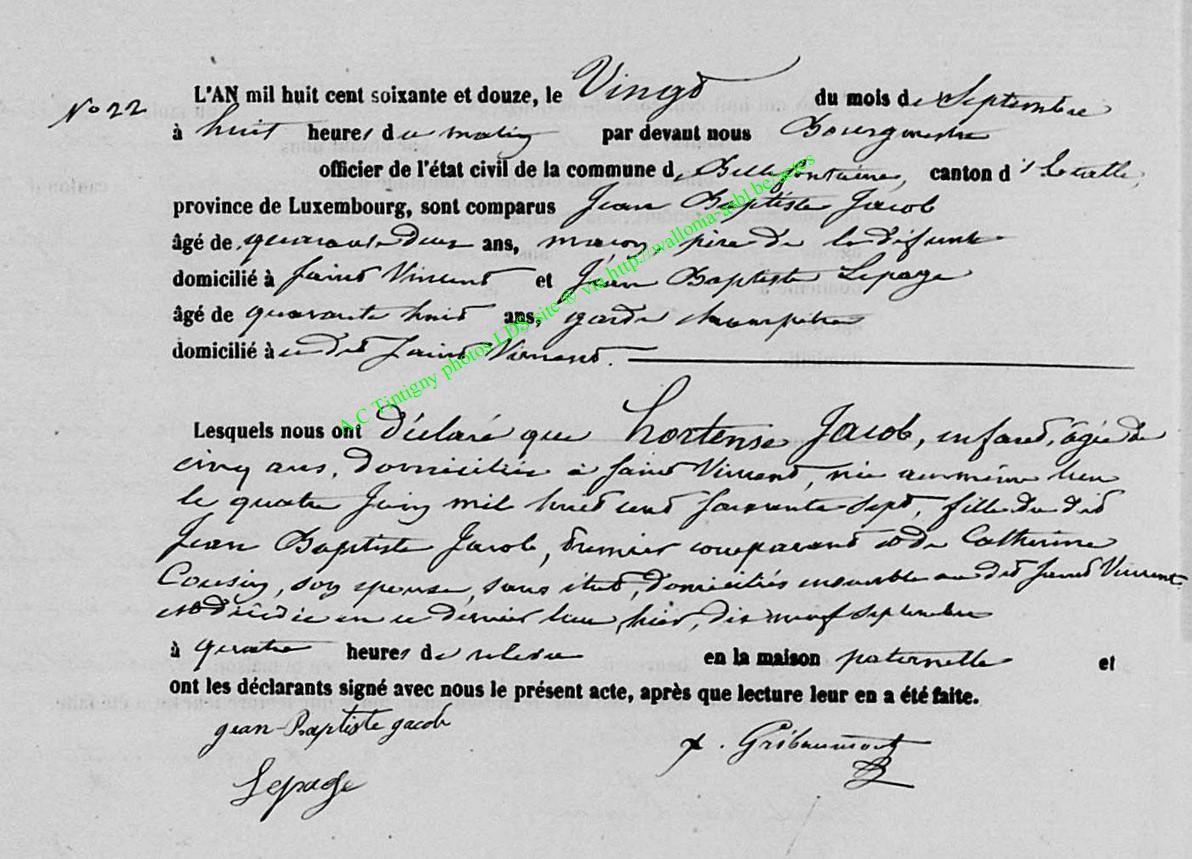 N° 22
L'AN mil huit cent soixante et douze, le Vingt du mois de Septembre
à huit heures du matin par devant nous Bourgmestre
officier de l'état civil de la commune de Bellefontaine, canton d'Etalle,
province de Luxembourg, sont comparus Jean Baptiste Jacob
âgé de quarante deux ans, maçon, père de la défunte
domicilié à Saint Vincent et Jean Baptiste Lepage
âgé de quarante huit ans, garde champêtre
domicilié à au dit Saint Vincent.
Lesquels nous ont déclaré que Hortense Jacob, enfant, âgée de
cinq ans, domiciliée à Saint Vincent, née au même lieu
le quatre Juin mil huit cent soixante sept, fille du dit
Jean Baptiste Jacob, premier comparant et de Catherine
Cousin, son épouse, sans état, domiciliés ensemble au dit Saint Vincent
est décédée en ce dernier lieu, hier, dix neuf septembre
à quatre heures de relevée en la maison paternelle et
ont les déclarants signé avec nous le présent acte, après que lecture leur en a été faite.
jean-Baptiste jacob
Lepage
Gribaumont
A.C Tintigny photos LDS site @ via http://wallonia-asbl.be/actes